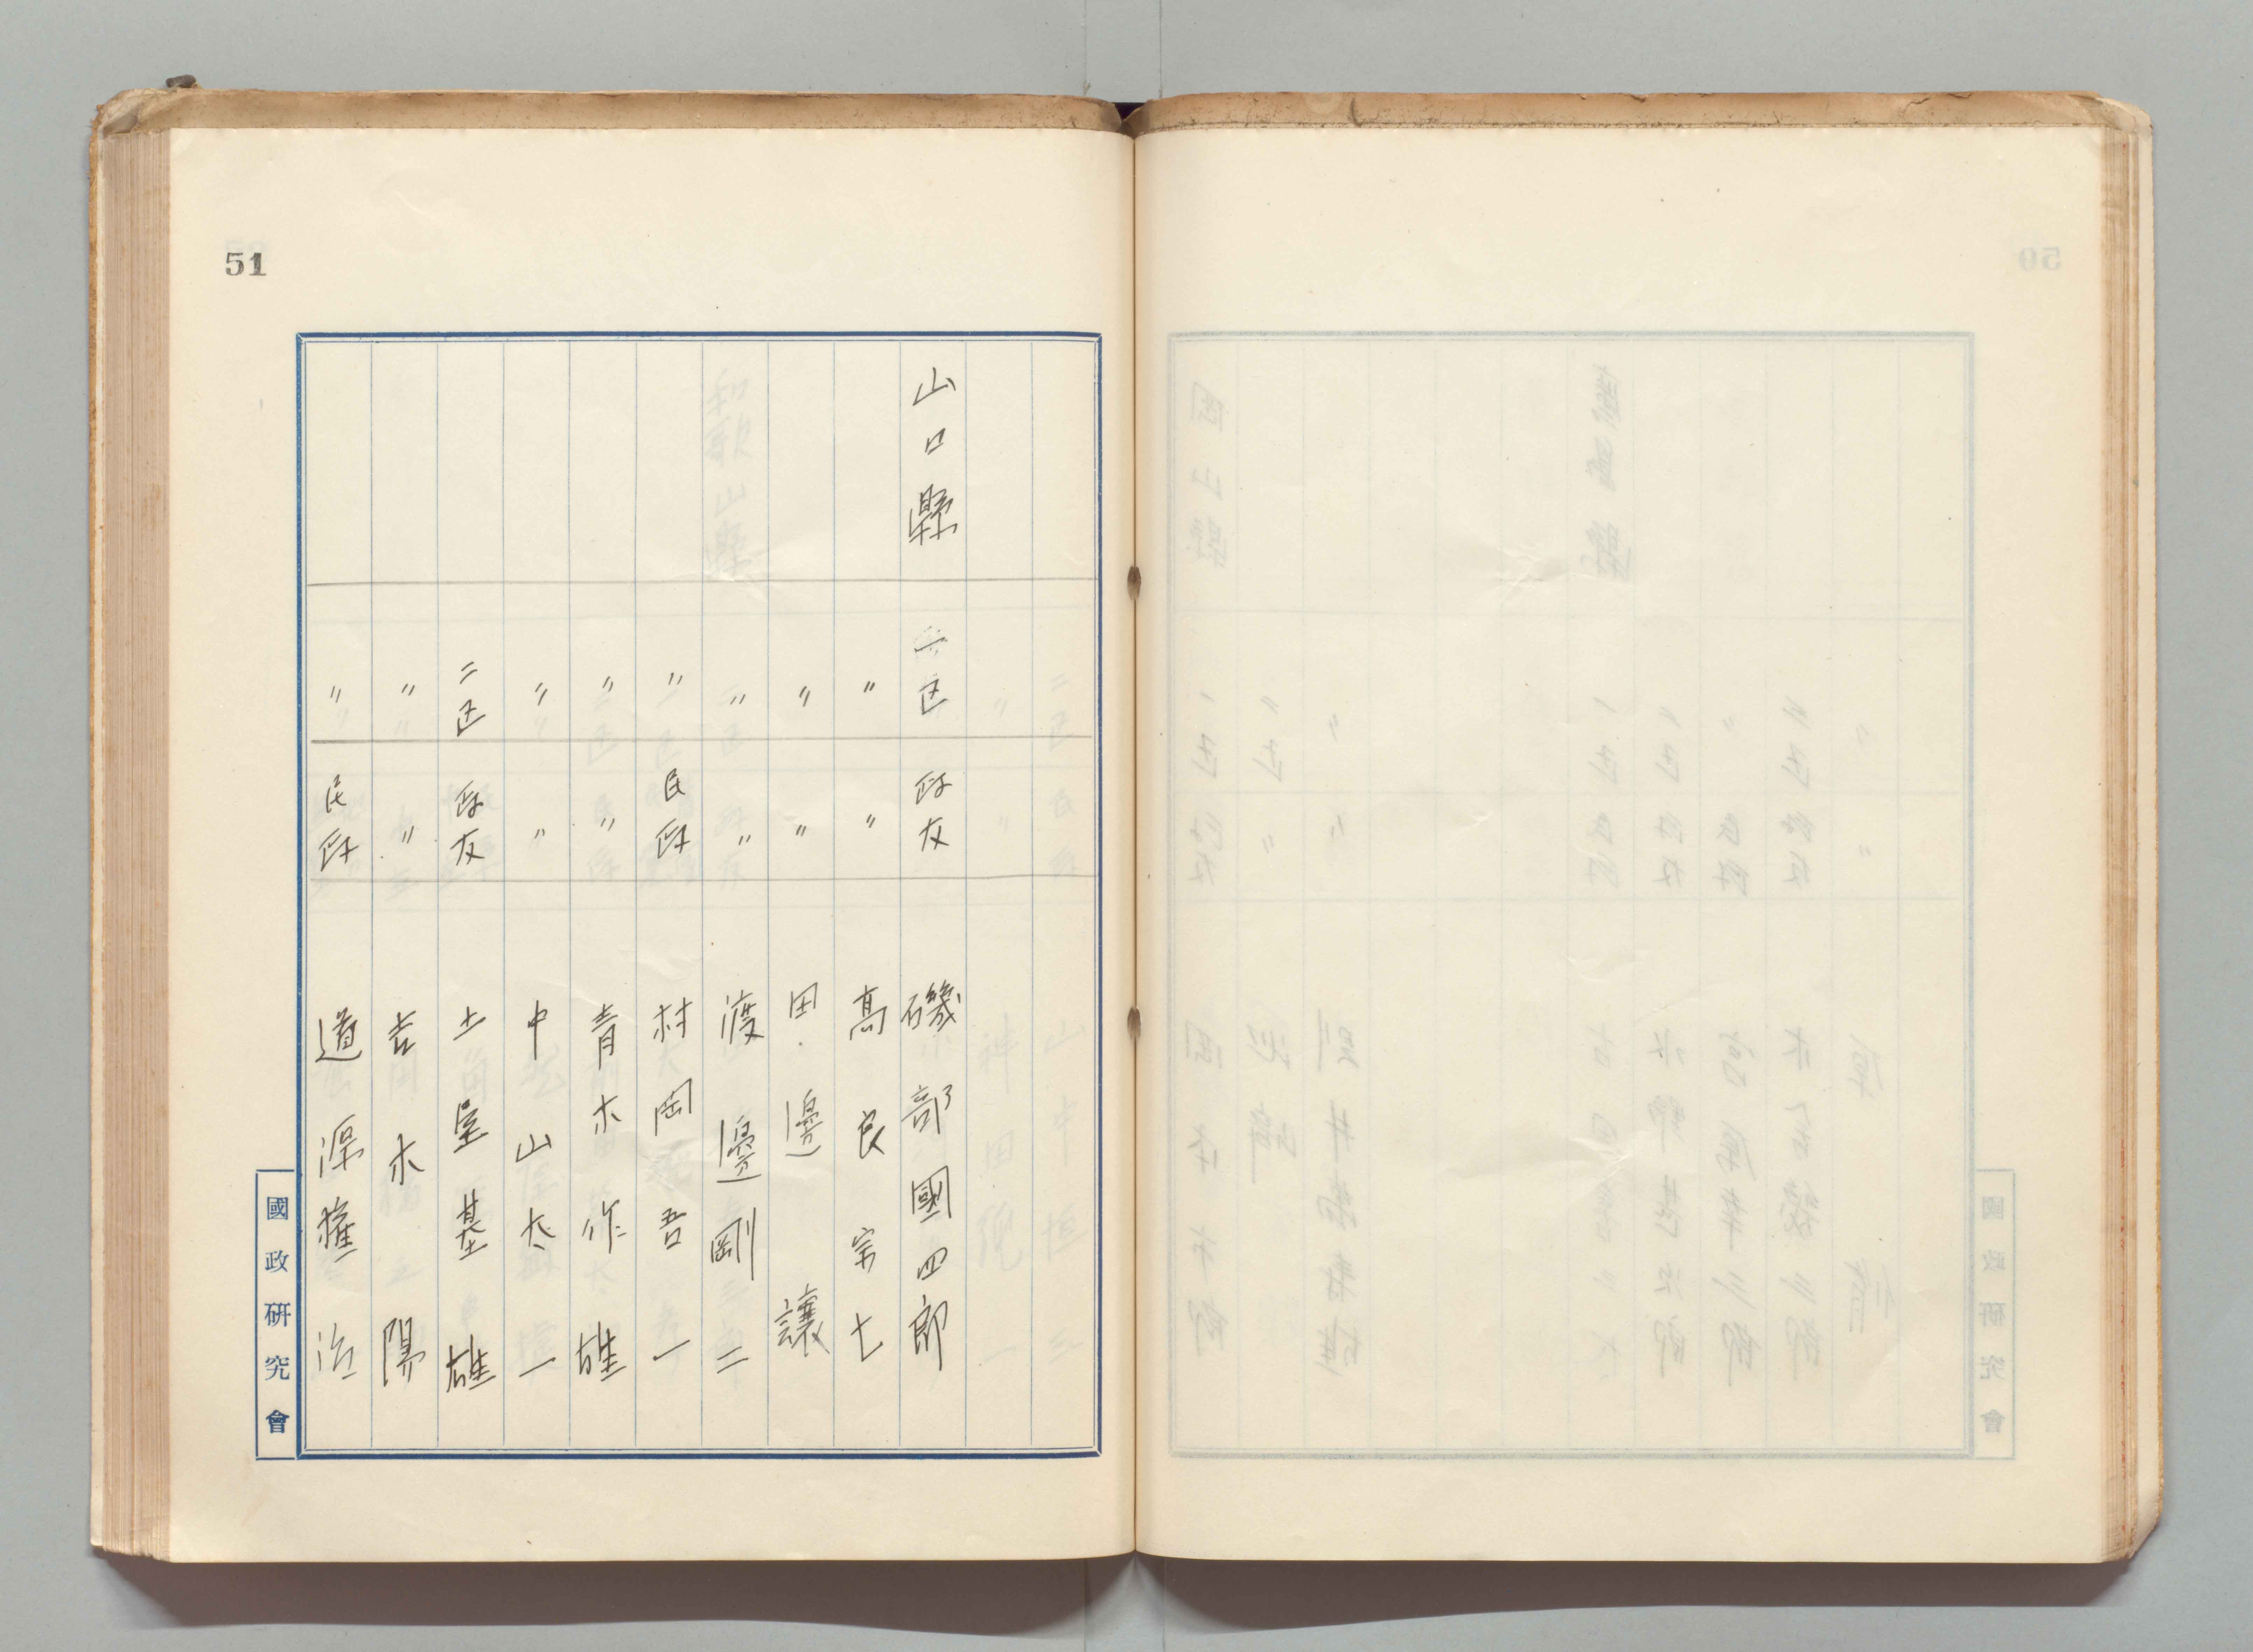 51
山口縣 一区 政友 磯部國四郎
〃 〃 高良宗七
〃 〃 田邊讓
〃 〃 渡邊剛二
〃 民政 村岡吾一
〃 〃 青木作雄
〃 〃 中山太一
二区 政友 土屋基雄
〃 〃 吉木陽
〃 民政 道源權治
國政研究會